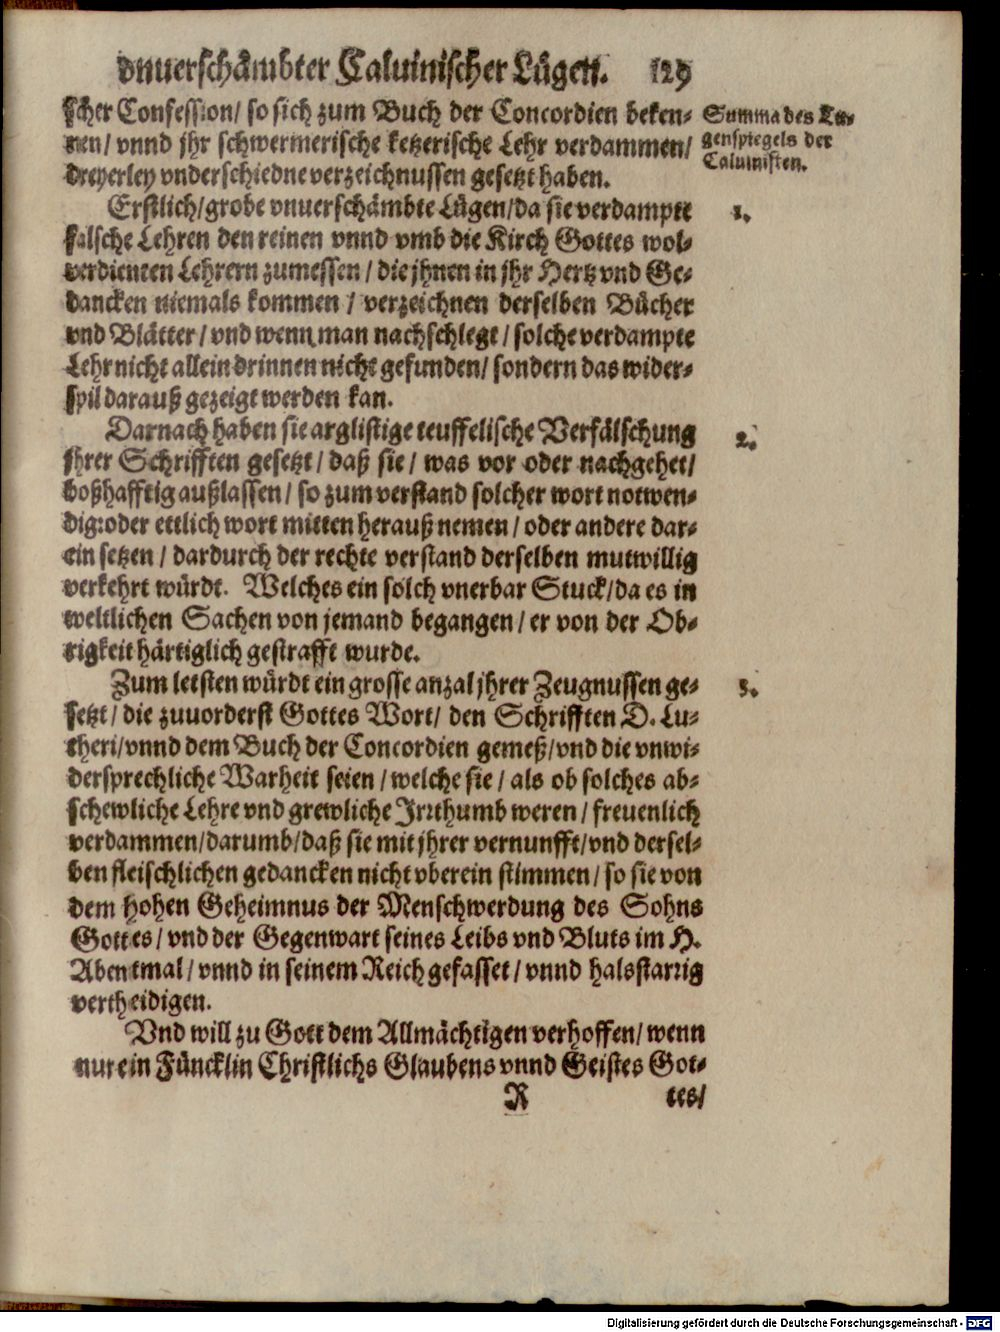 vnuerschämbter Caluinischer Lügen. 129
scher Confession/ so sich zum Buch der Concordien beken-
nen/ vnnd jhr schwermerische ketzerische Lehr verdammen/
dreyerley vnderschiedne verzeichnussen gesetzt haben.
Summa des Lu-
genspiegels der
Caluinisten.
Erstlich/ grobe vnuerschämbte Lügen/ da sie verdampte
1.
falsche Lehren den reinen vnnd vmb die Kirch Gottes wol-
verdienten Lehrern zumessen / die jhnen in jhr Hertz vnd Ge-
dancken niemals kommen / verzeichnen derselben Bücher
vnd Blätter/ vnd wenn man nachschlegt / solche verdampte
Lehr nicht allein drinnen nicht gefunden/ sondern das wider-
spil darauß gezeigt werden kan.
Darnach haben sie arglistige teuffelische Verfälschung
2.
jhrer Schrifften gesetzt / daß sie / was vor oder nachgehet/
boßhafftig außlassen / so zum verstand solcher wort notwen-
dig: oder ettlich wort mitten herauß nemen / oder andere dar-
ein setzen / dardurch der rechte verstand derselben mutwillig
verkehrt würdt. Welches ein solch vnerbar Stuck/ da es in
weltlichen Sachen von jemand begangen / er von der Ob-
rigkeit härtiglich gestrafft wurde.
Zum letsten würdt ein grosse anzal jhrer Zeugnussen ge-
3.
setzt / die zuuorderst Gottes Wort/ den Schrifften D. Lu-
theri/ vnnd dem Buch der Concordien gemeß/ vnd die vnwi-
dersprechliche Warheit seien / welche sie / als ob solches ab-
schewliche Lehre vnd grewliche Jrrthumb weren / freuenlich
verdammen/ darumb/ daß sie mit jhrer vernunfft/ vnd dersel-
ben fleischlichen gedancken nicht vberein stimmen / so sie von
dem hohen Geheimnus der Menschwerdung des Sohns
Gottes / vnd der Gegenwart seines Leibs vnd Bluts im H.
Abentmal / vnnd in seinem Reich gefasset / vnnd halsstarrig
vertheidigen.
Vnd will zu Gott dem Allmächtigen verhoffen/ wenn
nur ein Füncklin Christlichs Glaubens vnnd Geistes Got-
R tes/
Digitalisierung gefördert durch die Deutsche Forschungsgemeinschaft - DFG